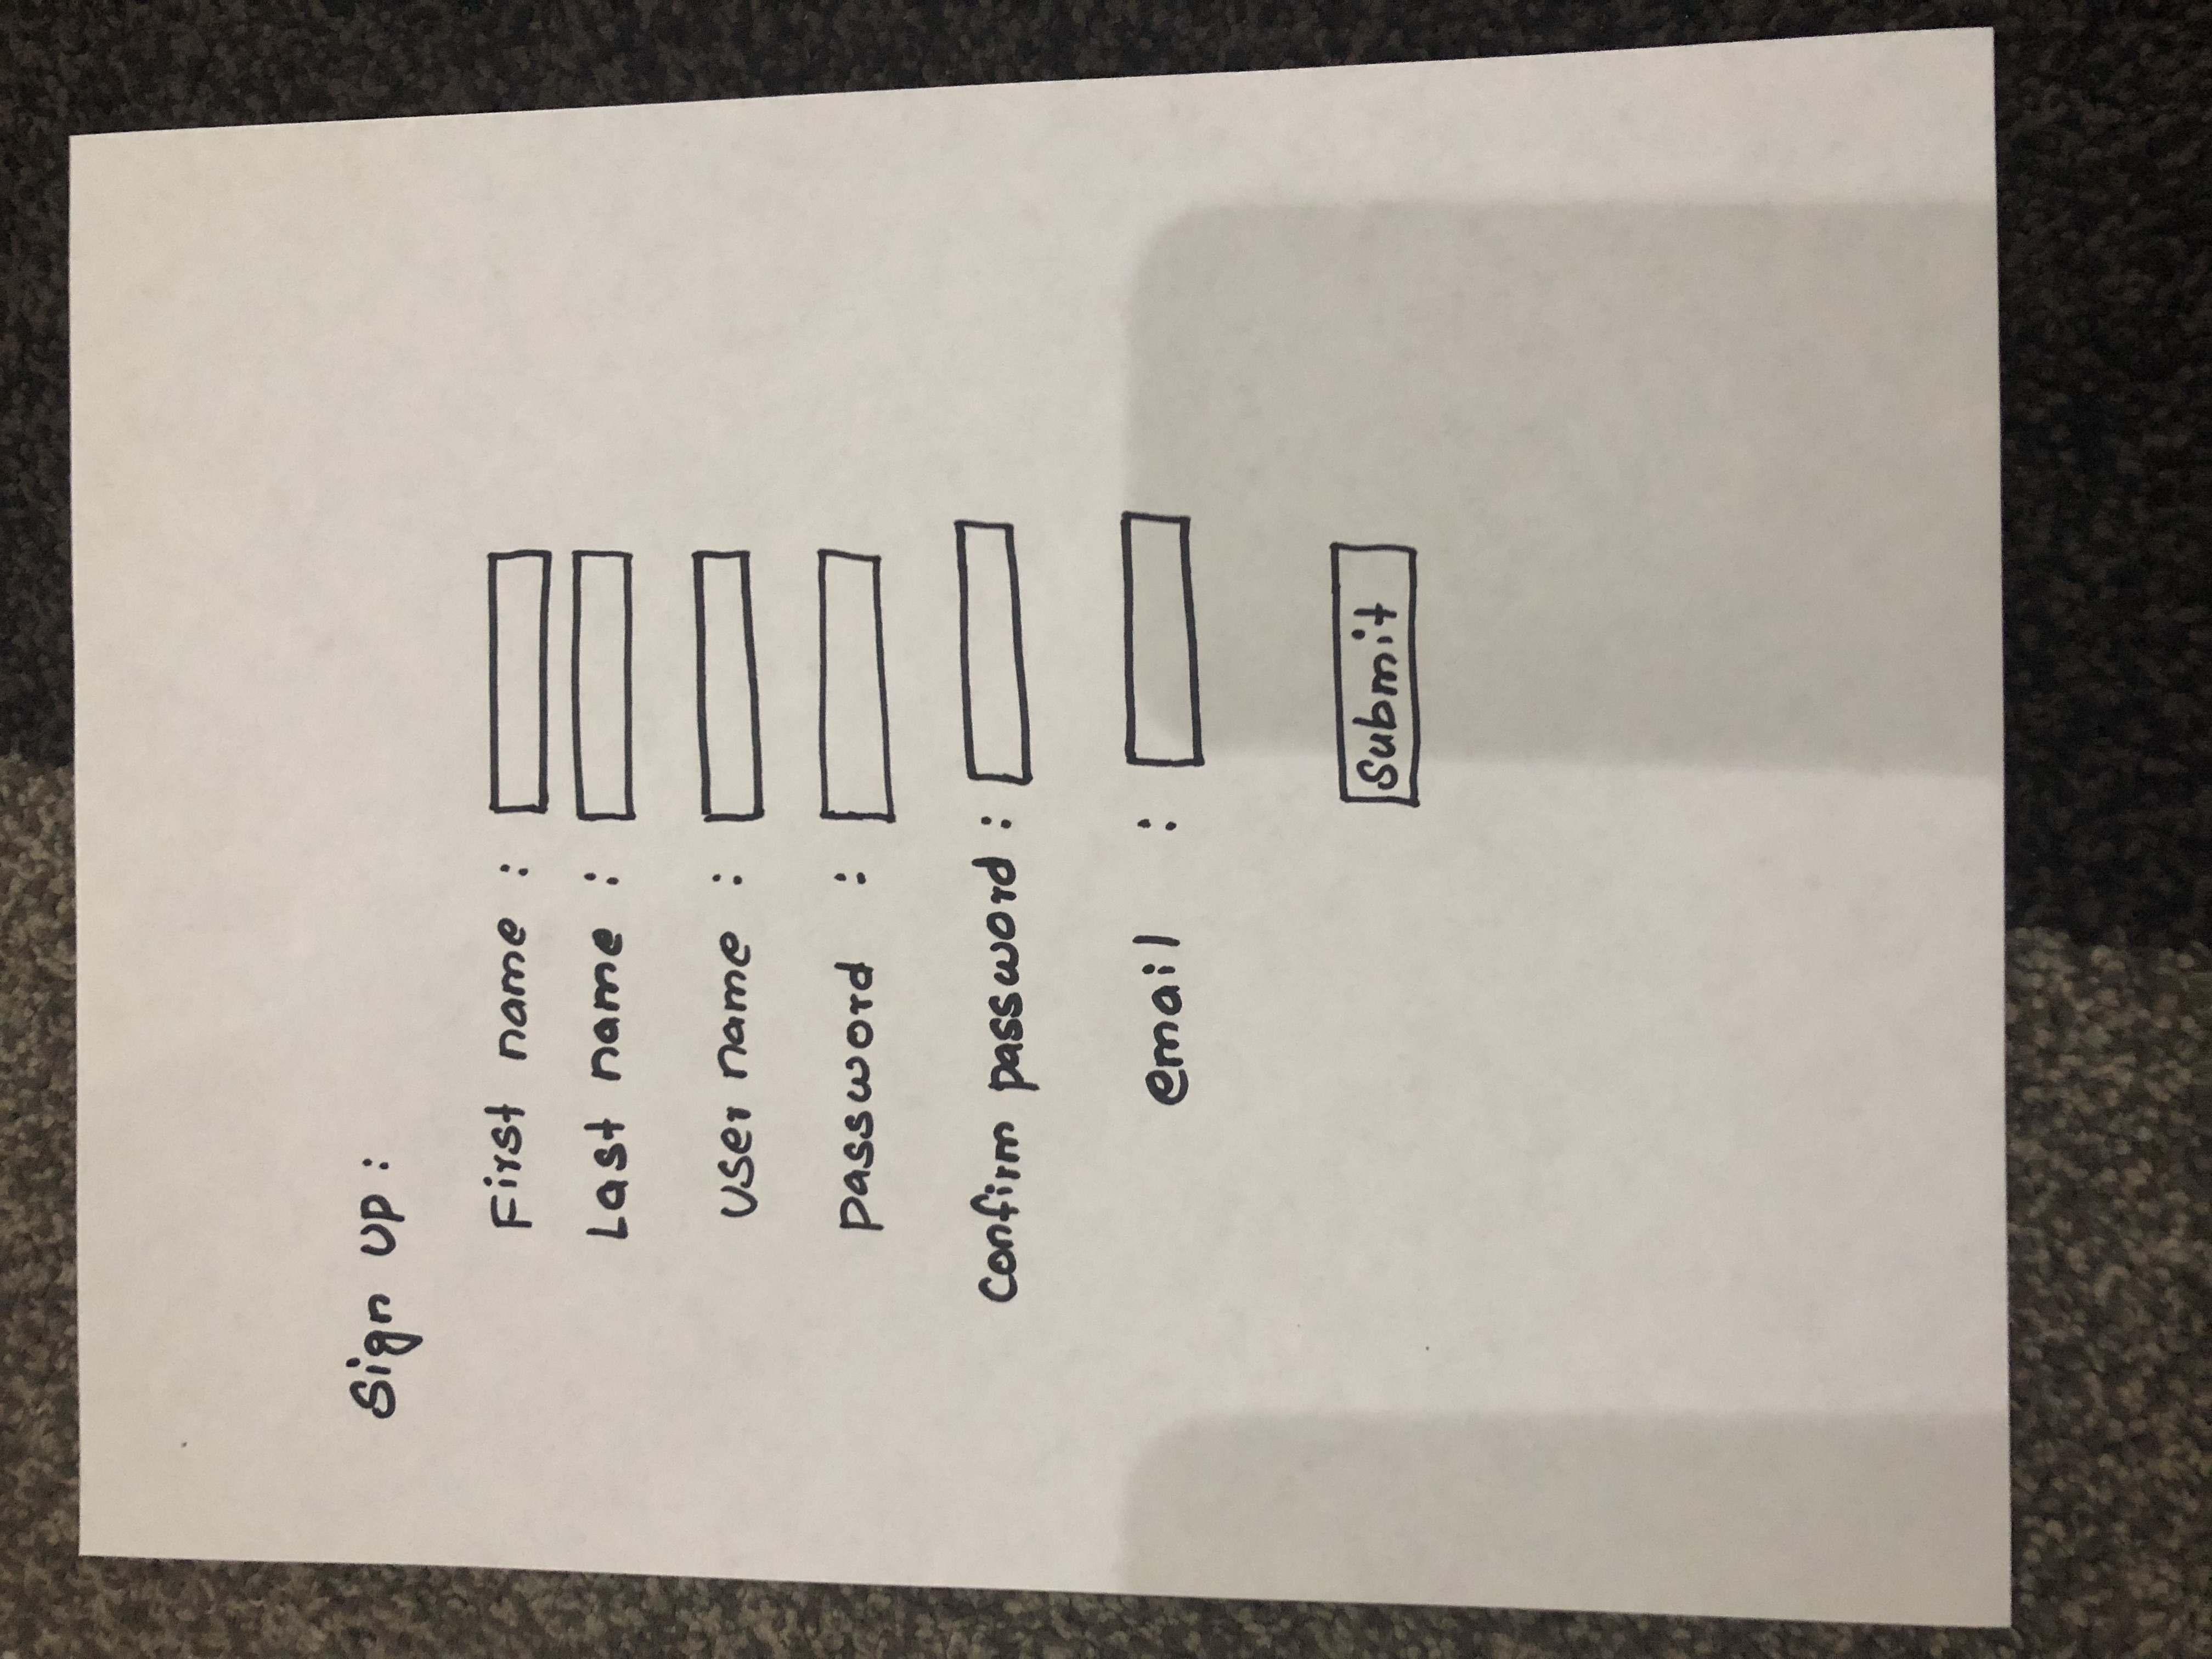 Sign up :
First name :
Last name :
user name :
password :
Confirm password :
email :
Submit